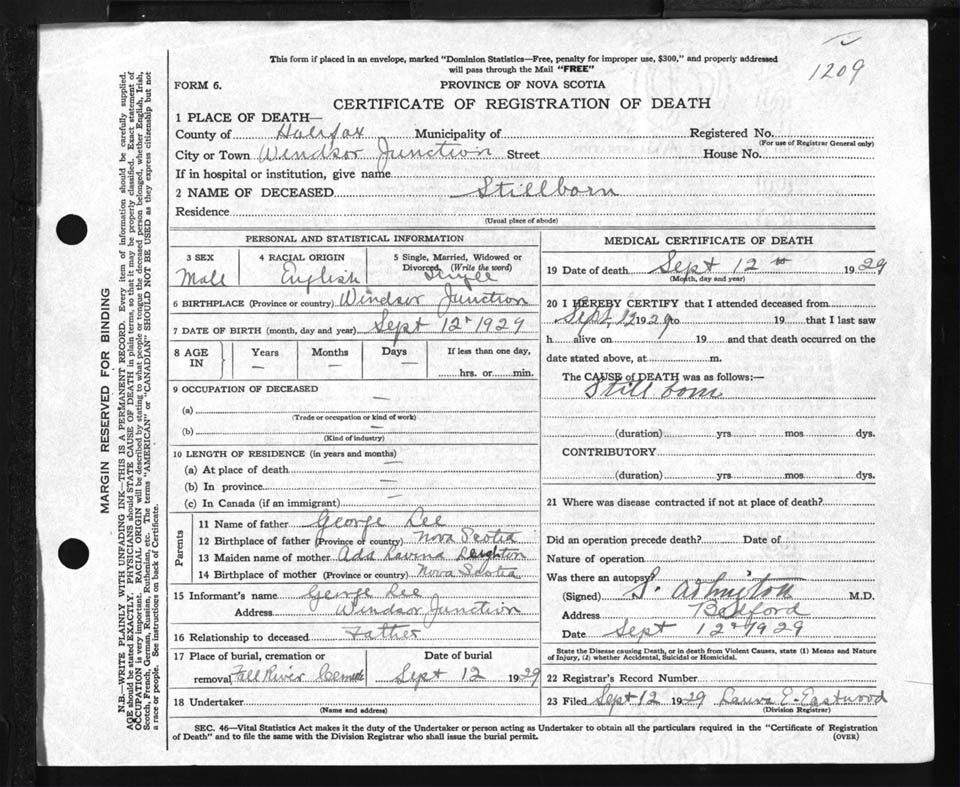 1209
This form if placed in an envelope, marked "Dominion Statistics—Free, penalty for improper use, $300," and properly addressed
will pass through the Mail "FREE"
FORM 6.
PROVINCE OF NOVA SCOTIA
CERTIFICATE OF REGISTRATION OF DEATH
1 PLACE OF DEATH—
County of Halifax Municipality of Registered No.
(For use of Registrar General only)
City or Town Windsor Junction Street House No.
If in hospital or institution, give name
2 NAME OF DECEASED Stillborn
Residence
(Usual place of abode)
PERSONAL AND STATISTICAL INFORMATION
3 SEX 4 RACIAL ORIGIN 5 Single, Married, Widowed or
Divorced (Write the word)
Male English Single
6 BIRTHPLACE (Province or country) Windsor Junction
7 DATE OF BIRTH (month, day and year) Sept 12 1929
8 AGE IN Years Months Days If less than one day,
— — — hrs. or min.
9 OCCUPATION OF DECEASED
(a) —
(Trade or occupation or kind of work)
(b) —
(Kind of industry)
10 LENGTH OF RESIDENCE (in years and months)
(a) At place of death —
(b) In province —
(c) In Canada (if an immigrant) —
Parents
11 Name of father George Lee
12 Birthplace of father (Province or country) Nova Scotia
13 Maiden name of mother Ada Lavina Leighton
14 Birthplace of mother (Province or country) Nova Scotia
15 Informant's name George Lee
Address Windsor Junction
16 Relationship to deceased Father
17 Place of burial, cremation or Date of burial
removal Fall River Sept 12 1929
18 Undertaker
(Name and address)
MEDICAL CERTIFICATE OF DEATH
19 Date of death Sept 12 th 1929
(Month, day and year)
20 I HEREBY CERTIFY that I attended deceased from
Sept. 12 1929 to 19 that I last saw
h alive on 19 and that death occurred on the
date stated above, at m.
The CAUSE of DEATH was as follows:—
Still born
(duration) yrs mos dys.
CONTRIBUTORY
(duration) yrs mos dys.
21 Where was disease contracted if not at place of death?
Did an operation precede death? Date of
Nature of operation
Was there an autopsy?
(Signed) M.D.
Address Bedford
Date Sept 12 1929
State the Disease causing Death, or in death from Violent Causes, state (1) Means and Nature
of Injury, (2) whether Accidental, Suicidal or Homicidal.
22 Registrar's Record Number
23 Filed Sept 12 1929 Laura E. Eastwood
(Division Registrar)
SEC. 46—Vital Statistics Act makes it the duty of the Undertaker or person acting as Undertaker to obtain all the particulars required in the "Certificate of Registration
of Death" and to file the same with the Division Registrar who shall issue the burial permit. (OVER)
MARGIN RESERVED FOR BINDING
N.B.—WRITE PLAINLY WITH UNFADING INK—THIS IS A PERMANENT RECORD. Every item of information should be carefully supplied.
AGE should be stated EXACTLY. PHYSICIANS should STATE CAUSE OF DEATH in plain terms, so that it may be properly classified. Exact statement of
OCCUPATION is very important. RACIAL ORIGIN will be described by stating to what people or tongue the deceased person belonged, whether English, Irish,
Scotch, French, German, Russian, Ruthenian, etc. The terms "AMERICAN" or "CANADIAN" SHOULD NOT BE USED as they express citizenship but not
a race or people. See instructions on back of Certificate.